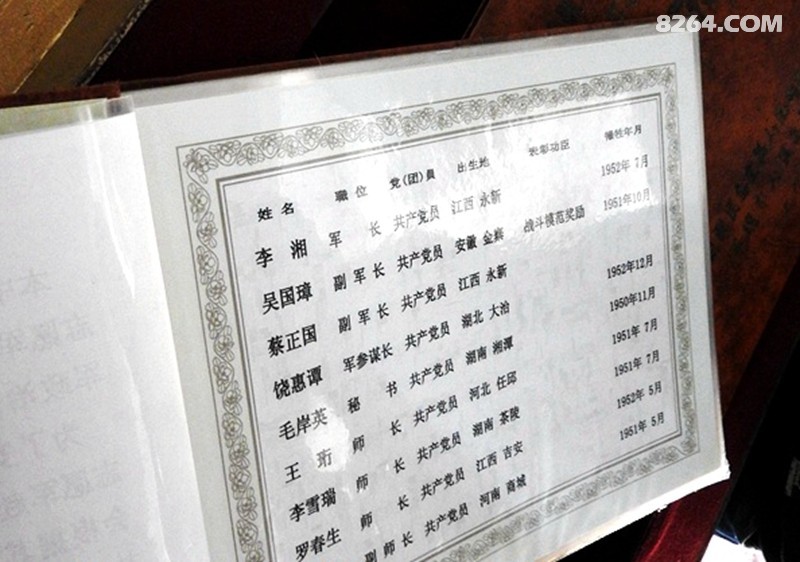 姓名 職位 党(团)員 出生地 表彰功臣 犧牲年月
李湘 军长 共产党员 江西 永新 1952年 7月
吴国璋 副军长 共产党员 安徽 金寨 战斗模范奖励 1951年10月
蔡正国 副军长 共产党员 江西 永新
饶惠谭 军参谋长 共产党员 湖北 大冶 1952年12月
毛岸英 秘书 共产党员 湖南 湘潭 1950年11月
王珩 师长 共产党员 河北 任邱 1951年 7月
李雪瑞 师长 共产党员 湖南 茶陵 1951年 7月
罗春生 师长 共产党员 江西 吉安 1952年 5月
副师长 共产党员 河南 商城 1951年 5月
8264.COM